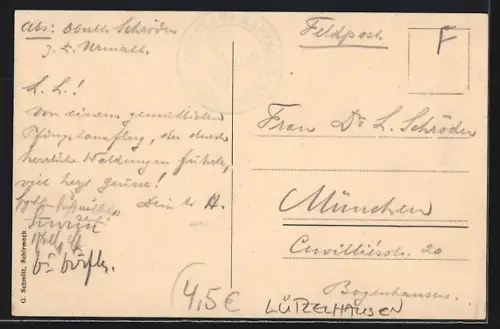 Abs: Obult. Schröder
z. Z. Urmatt.
L. L.!
Von einem gemütlichen
Pfingstausflug, der durch
herrliche Waldungen führte,
viel herzl. Grüsse!
Dein tr. H.
Feldpost.
F
Frau Dr. L. Schröder
München
Cuvilliésstr. 20
Bogenhausen
G. Schmitt, Schirmeck
4,5€
LÜTZELHAUSEN